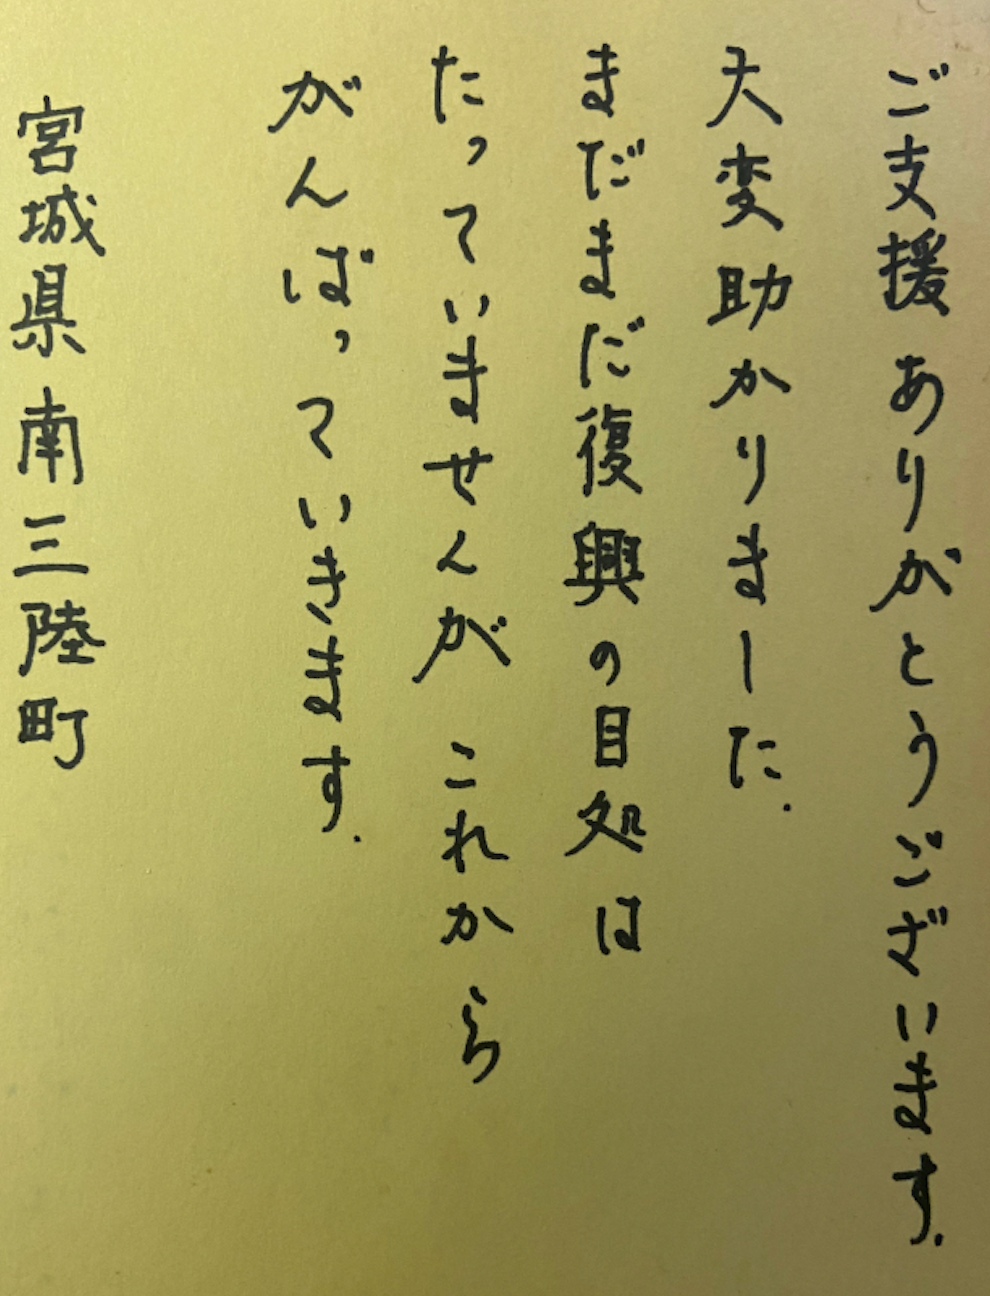 ご支援ありがとうございます.
大変助かりました.
まだまだ復興の目処は
たっていませんが これから
がんばっていきます.
宮城県南三陸町